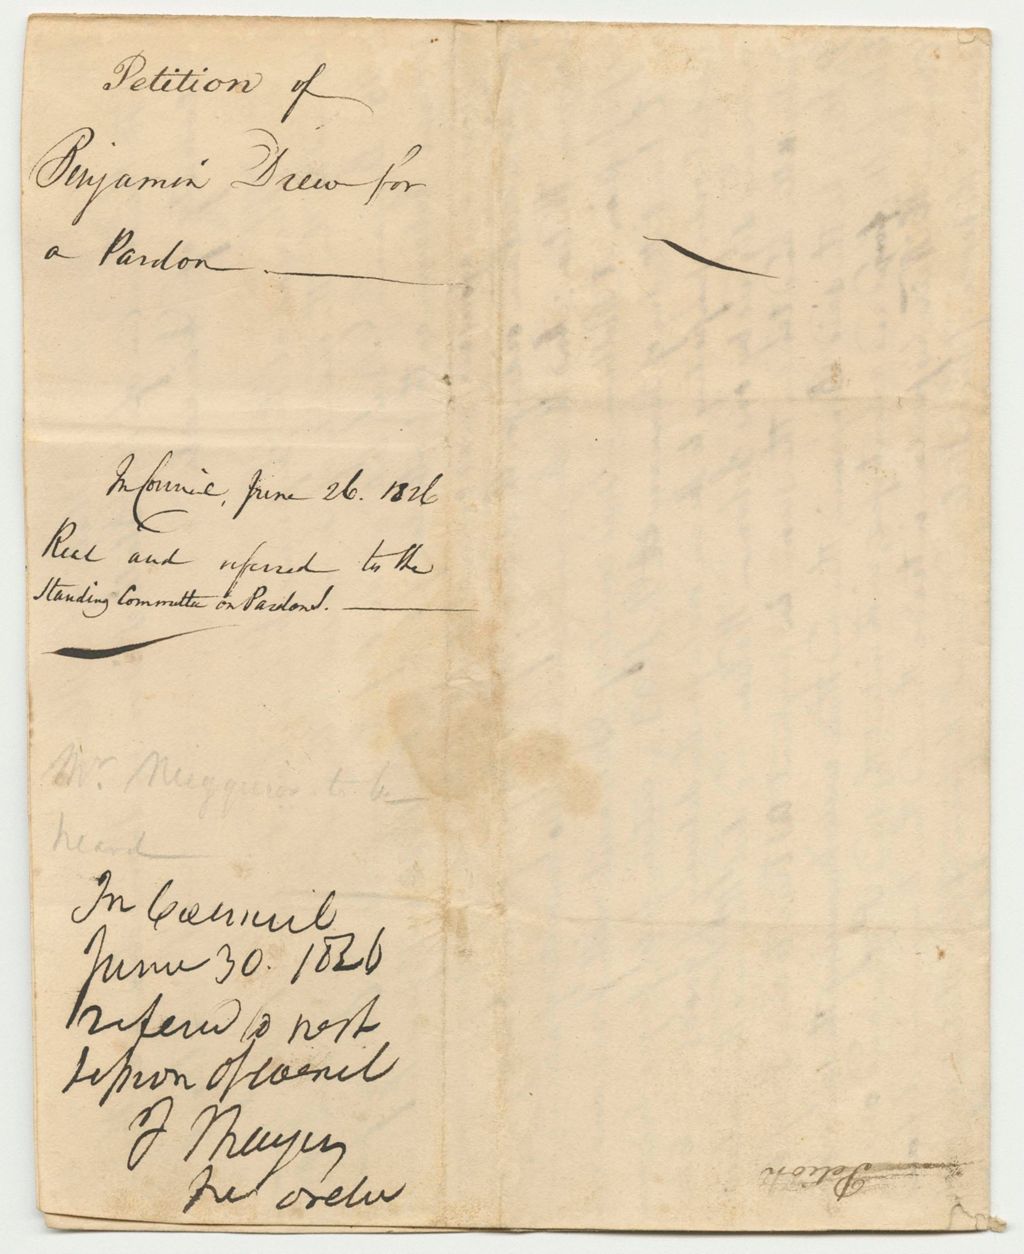 Petition of
Benjamin Drew for
a Pardon
In Council, June 26. 1826
Read and referred to the
Standing Committee on Pardons.
Mr. to be
heard
In Council
June 30. 1826
refered to next
session of Council
per order
Petition